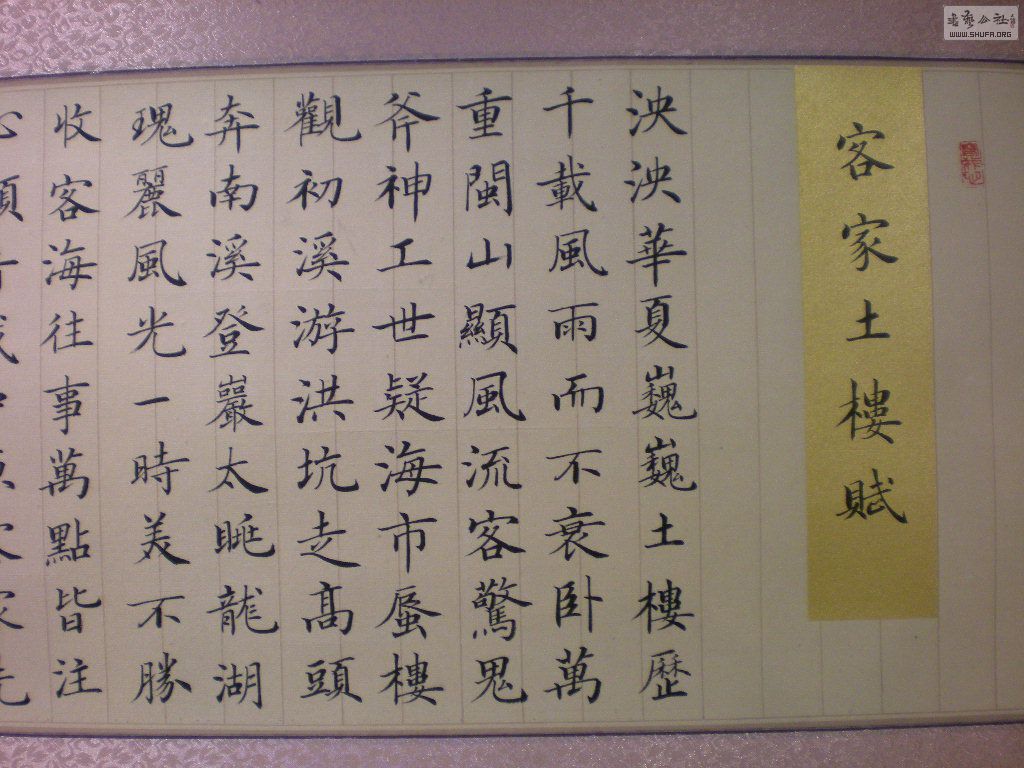 客家土樓賦
泱泱華夏巍巍土樓歷
千載風雨而不衰卧萬
重閩山顯風流客驚鬼
斧神工世疑海市蜃樓
觀初溪游洪坑走髙頭
奔南溪登巖太眺龍湖
瑰麗風光一時美不勝
收客海往事萬點皆注
書藝公社
WWW.SHUFA.ORG